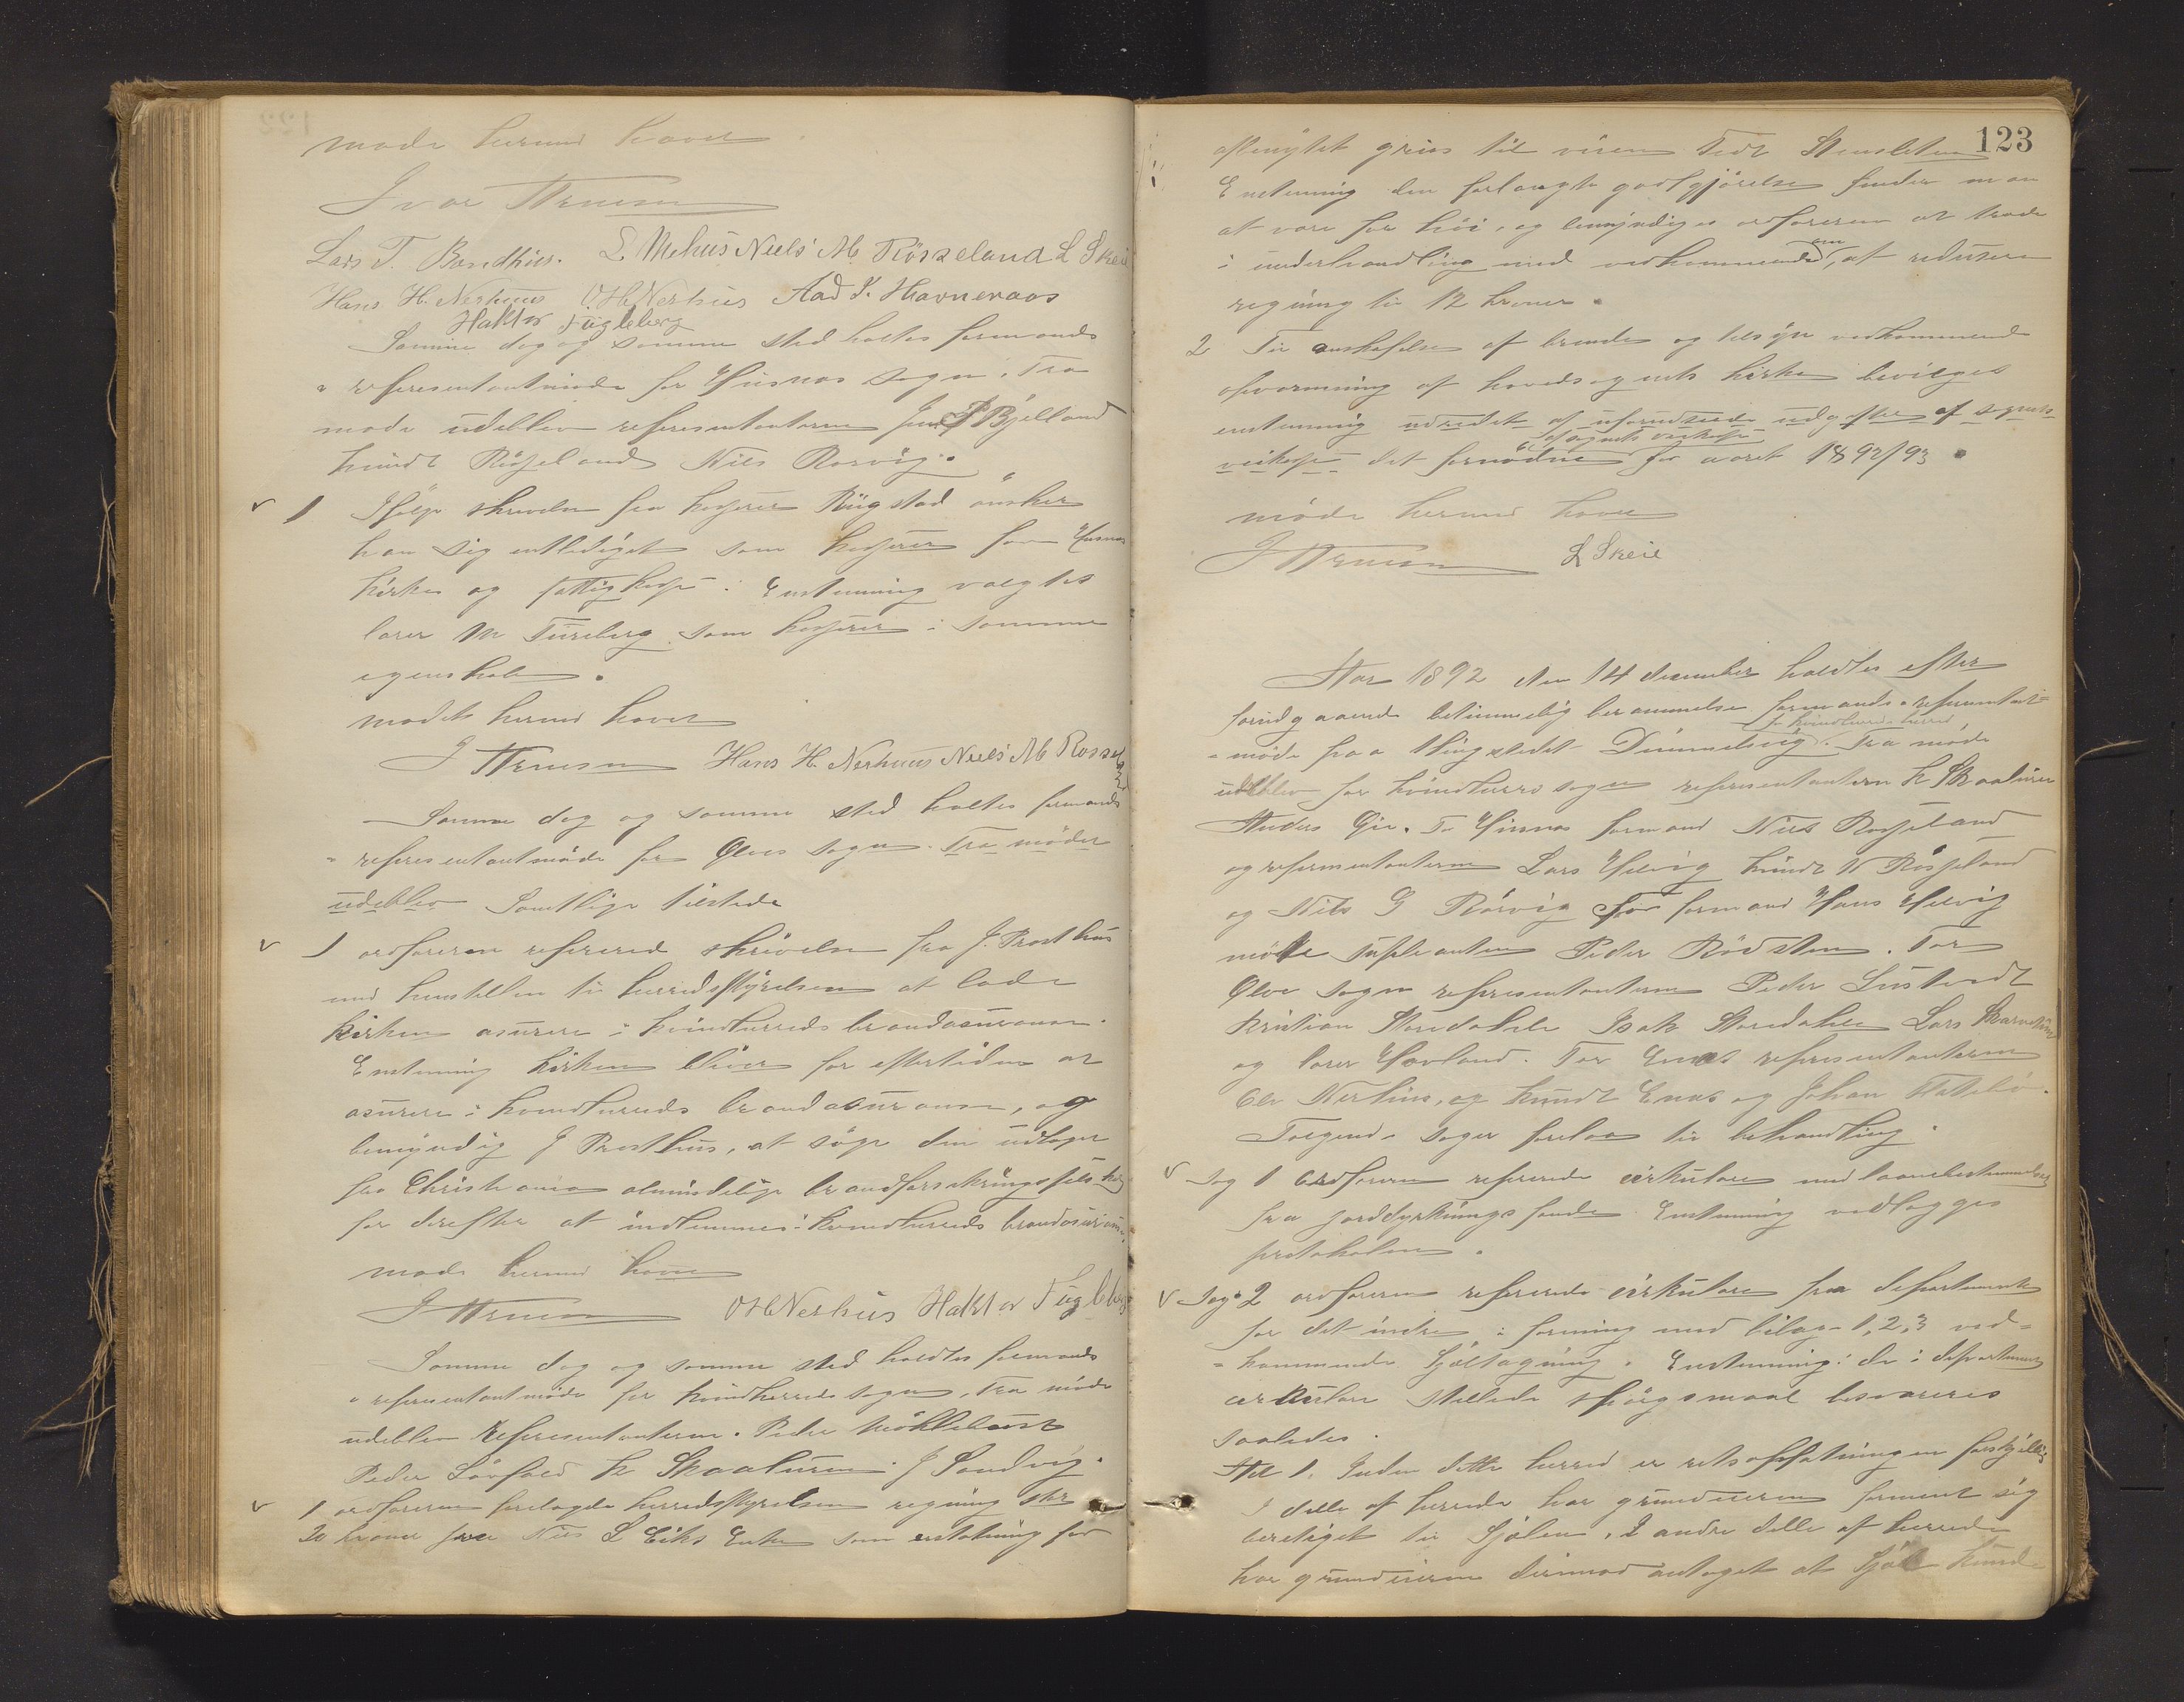 møde hermed hævet
Ivar Arnesen
Lars T. Bondhus. L Mehus Neels M. Røsseland L Skeie
Hans H. Nerhuus O H Nerhus Aad K. Havneraas
Haktor Fugleberg
Samme dag og samme sted holtes formands
= representantmøde for Husnæs sogn. Fra
møde udeblev representanterne Jens P Bjelland
knudt Røsseland Nils Rørvig.
v 1 Ifølge skrivelse fra kasserer Rugstad ønsker
han sig entlediget som kasserer for Husnæs
kirke og fattigkasse. Enstemmig valgtes
lærer M Tureberg som kasserer i samme
egenskab.
mødet hermed hævet
I Arnesen Hans H. Nerhuus Neels M Rosseland
Samme dag og samme sted holtes formands
= representantmøde for Ølves sogn. Fra møder
udeblev Samtlige tilstede
v 1 ordføreren referered skrivelse fra J. Prosthus
med henstillen til herredsstyrelsen at lade
kirken asurere i kvindherreds brandasurance.
Enstemmig kirken bliver for eftertiden at
asurere i kvindherreds brandasurance, og
bemyndig J Prosthus, at søge den udtaget
fra Christiania almindelige brandforsekringsselskab
for derefter at indtemmes i kvindherreds brandasurance.
møde hermed hævet
I Arnesen O H Nerhus Haktor Fugleberg
Samme dag og samme sted holdtes formands
= representantmøde for kvindherreds sogn, Fra møde
udeblev Representanterne. Peder Møklebust
Peder Løvfald K Skaaluren J Sandvig.
v 1 ordføreren forelagde herredsstyrelsen regning stor
20 kroner fra Nils L Eiks Enke som erstatning for
123
afbenyttet grius til veien ved
Enstemmig den forlangte godtgjørelse finder man
at være for høi, og bemyndiges ordføreren at træde
i underhandling med vedkommende om, at redusere
regning til 12 kroner.
2 Til anskafelse af brænde og tilsyn vedkommende
opvarmning af hovedsognets kirke beviges
enstemmig udredet af uforudseede udgifter af sognets
af sognets veikasse
veikasse det fornødne for aaret 1892/93.
møde hermed hævet
I Arnesen L Skeie
Aar 1892 den 14 december holdtes efter
forudgaaende betimmelig berammelse formands = representant=
f. kvindherreds herred
= møde paa thingstedet Dimmelsvig. Fra møde
udeblev for kvindherres sogn representantern K Skaaluren
Anders Gie. For Husnæs formand Nils Røsseland
og representanterne Lars Helvig knudt N Røsseland
og Nils G Rørvig For formand Hans Helvig
møtte supleanten Peder Rødsten. For
Ølve sogn representanterne Peder
Kristian Staredahle Isak Staredahle Lars
og lærer Hovland. For Enæs representanterne
Ole Nerhus, og knudt Enæs og Johan
Følgende sager forelaa til behandling.
v Sag 1 Ordføreren refererede cirkulære med laanebestemmelser
fra jorddyrknings fondet Enstemmig vedlægges
protokolen.
v Sag 2 ordføreren refererede cirkulære fra departementet
for det indre, i forening med bilage 1, 2, 3 ved=
= kommende Sjøltagning. Enstemmig: de i departementets
cirkulære stillede spørgsmaal besvareres
saaledes.
Til 1. Inden dette herred er retsopfatningen forskjellig
I delle af herrede har grundeieren forment sig
beretiget til Sjølen. I andre delle af herrede
har grundeieren derimod antaget at Sjøl kunde